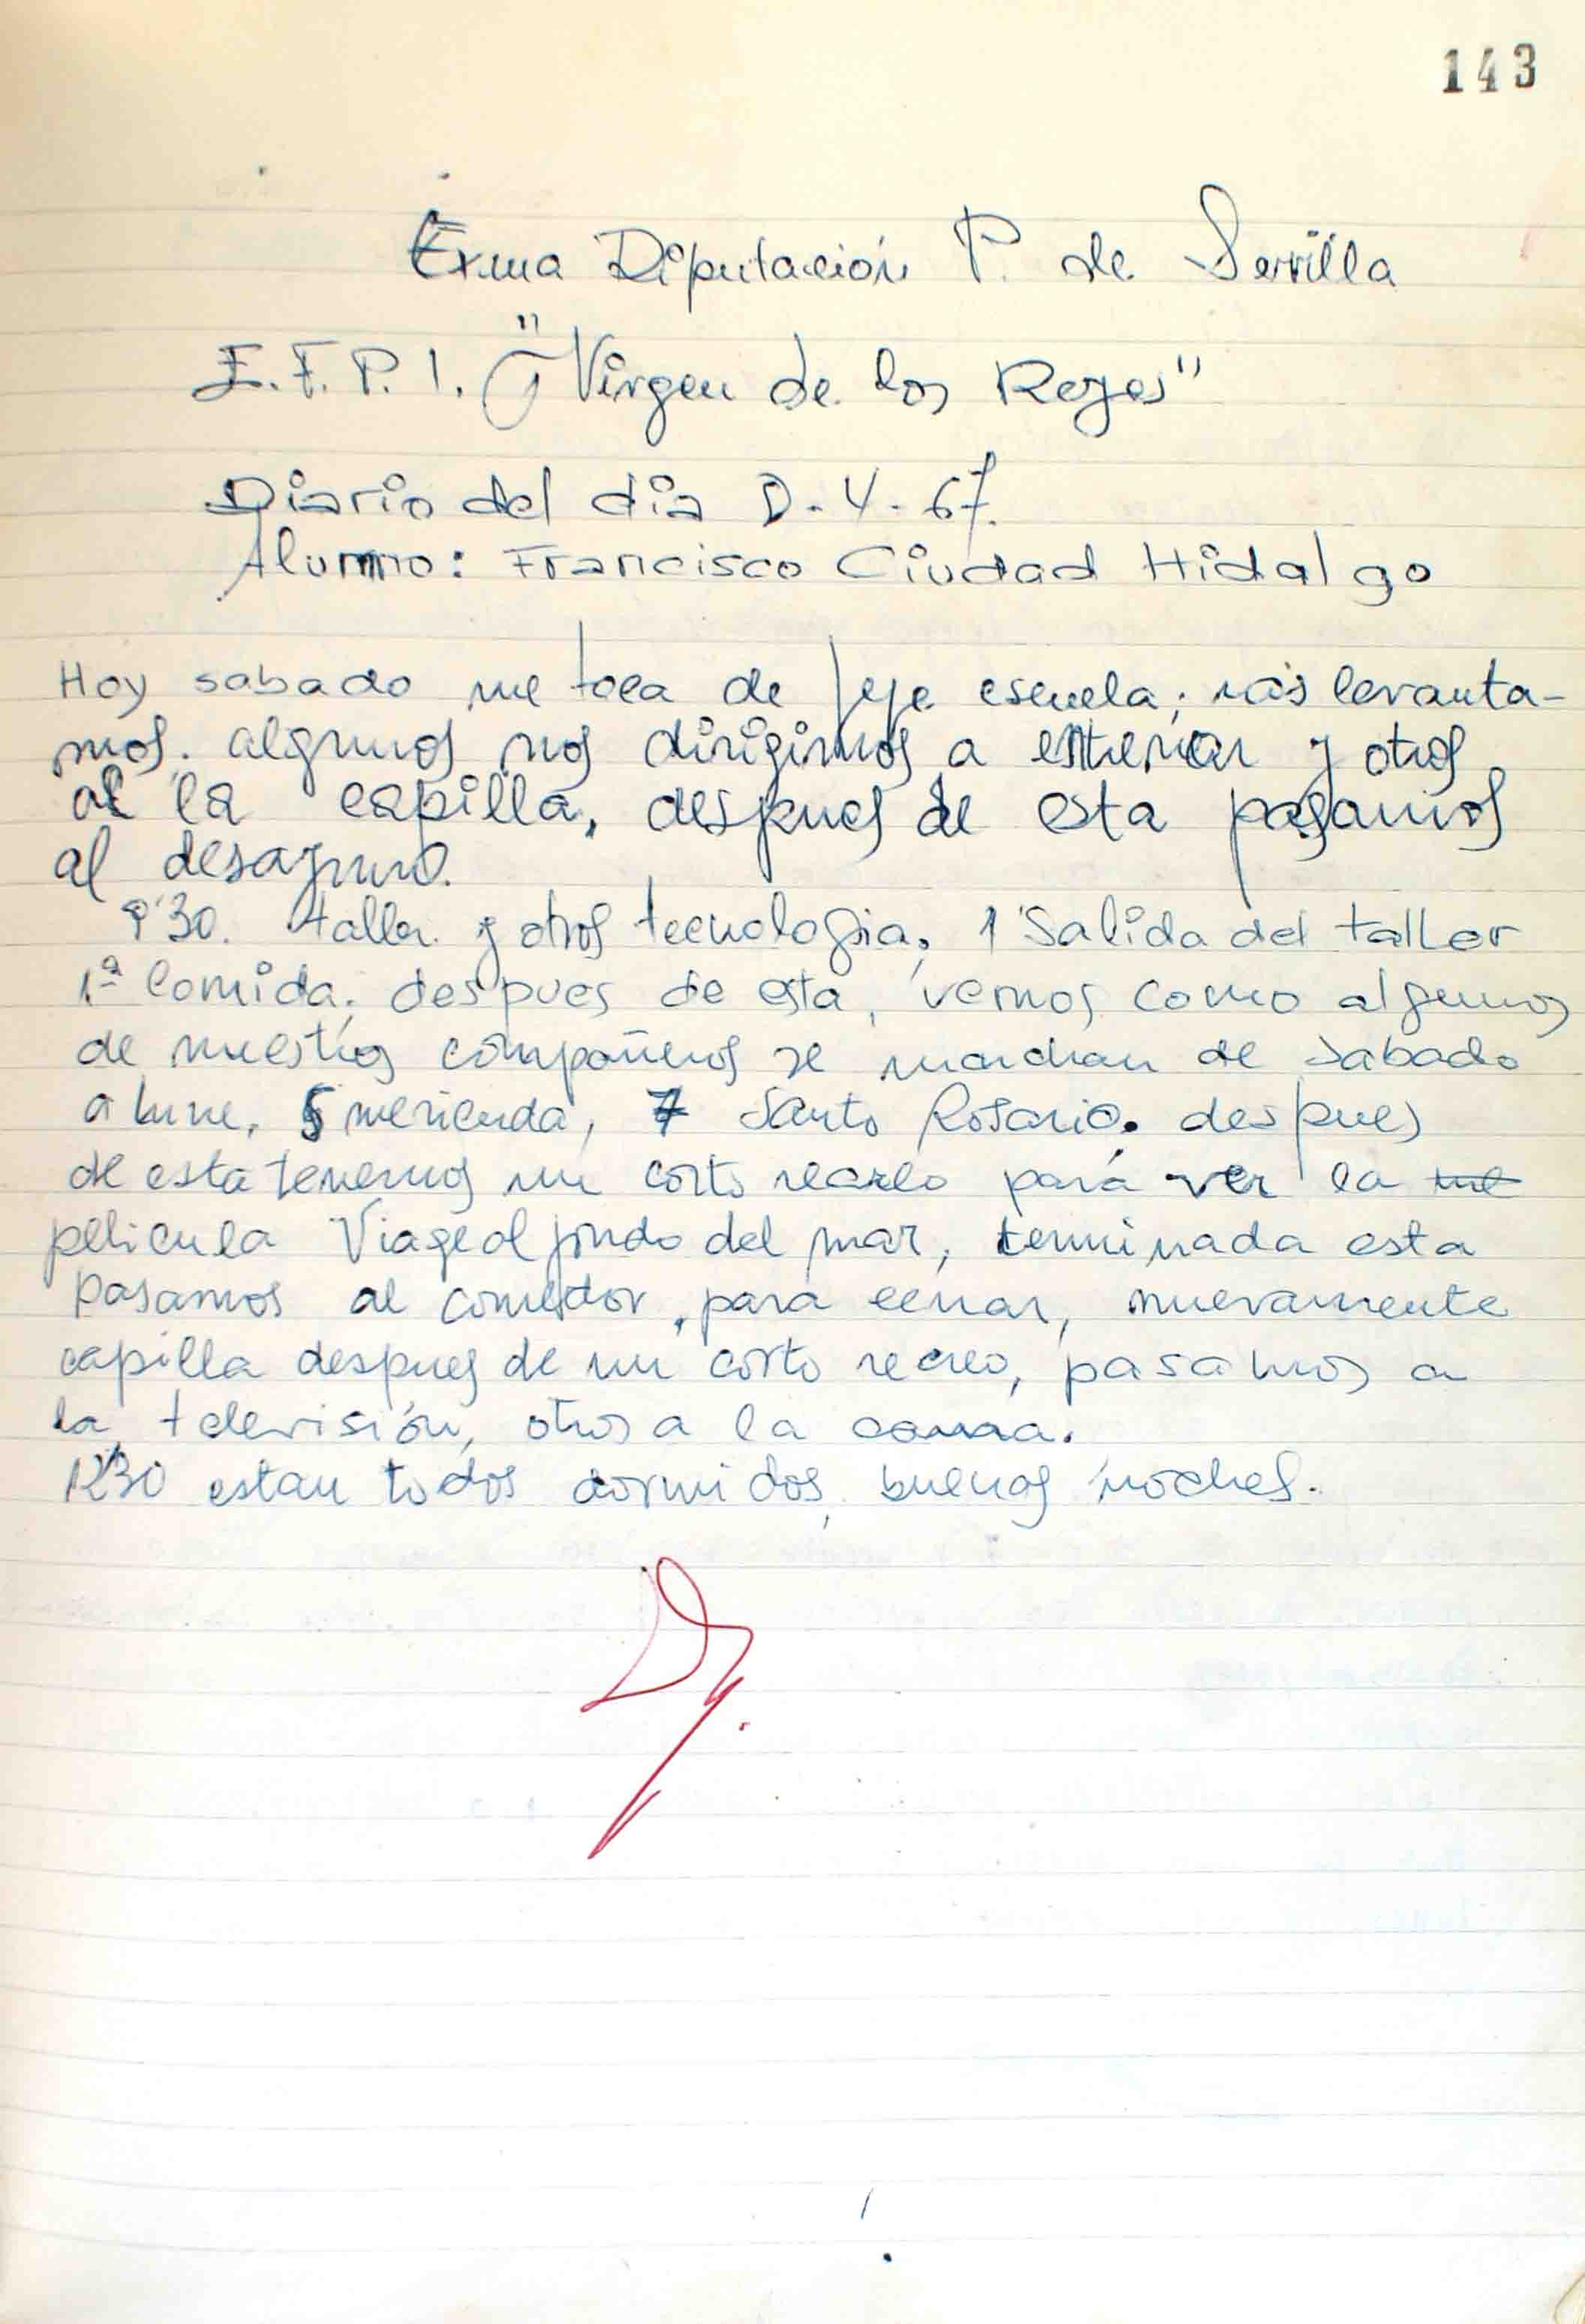 143
Exma Diputación P. de Sevilla
E.F.P.I. "Virgen de los Reyes"
Diario del dia 8-4-67.
Alumno: Francisco Ciudad Hidalgo
Hoy sabado me toca de Jefe escuela; nos levanta-
mos. algunos nos dirigimos a entrenar y otros
a la capilla, despues de esta pasamos
al desayuno.
9'30. taller y otros tecnologia, 1 Salida del taller
1ª Comida, despues de esta, vemos como algunos
de nuestros compañeros se marchan de sabado
a lune, 5 merienda, 7 Santo Rosario. despues
de esta tenemos un corto recreo para ver la
pelicula Viage al fondo del mar, terminada esta
pasamos al comedor, para cenar, nuevamente
capilla despues de un corto recreo, pasamos a
la televisión, otros a la cama.
12'30 estan todos dormidos, buenas noches.